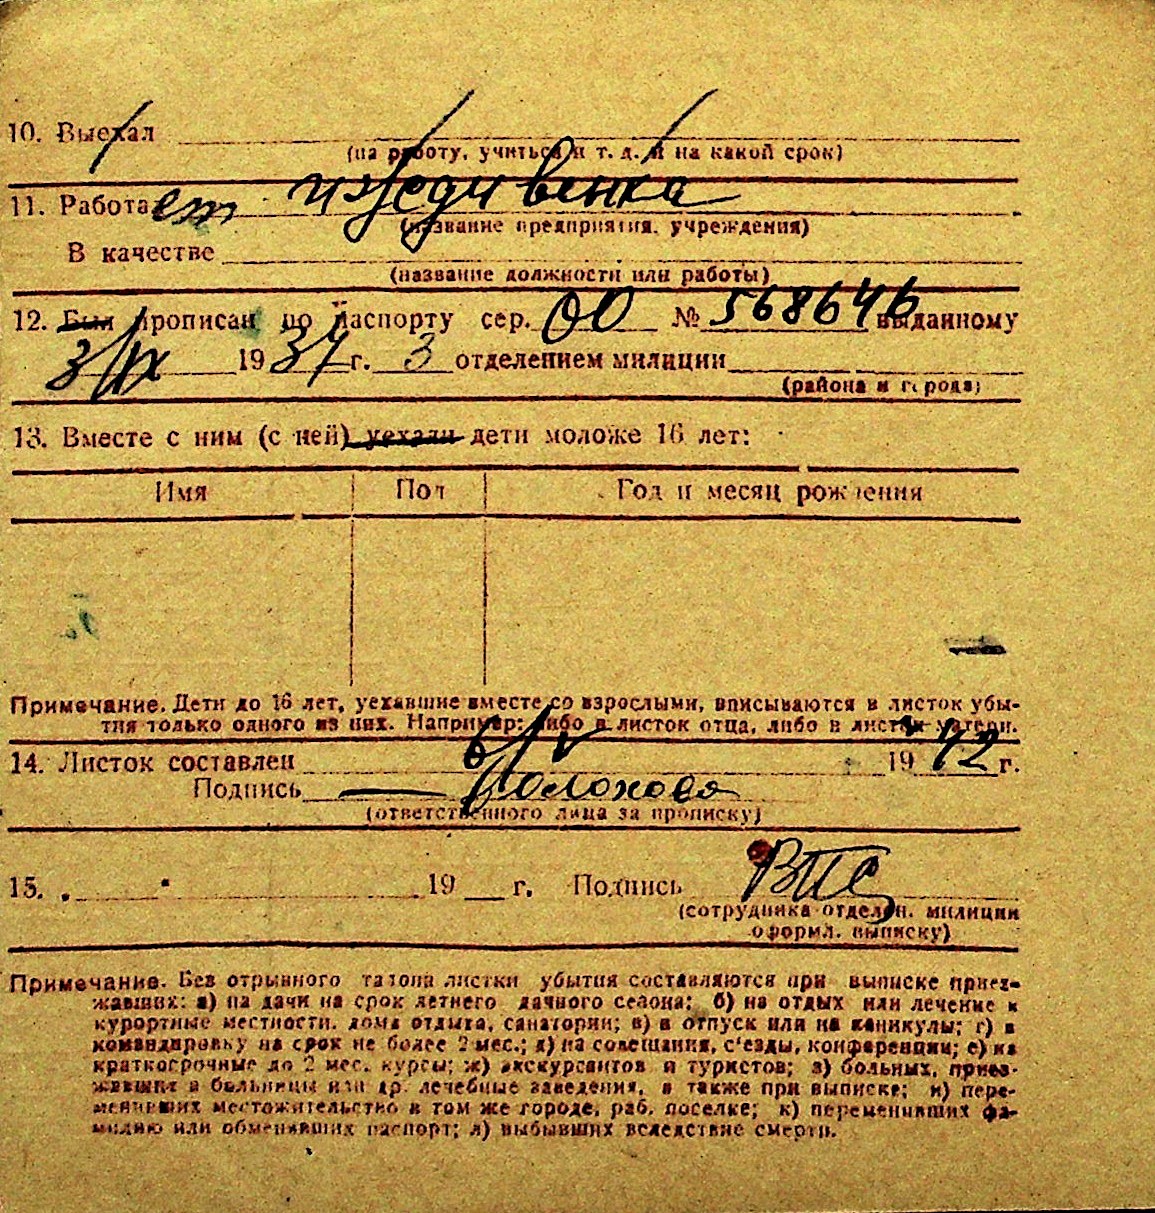 10. Выехал
(на работу, учиться и т. д. и на какой срок)
11. Работает иждивенка
(название предприятия, учреждения)
В качестве
(название должности или работы)
12. Был прописан по паспорту сер. 00 № 568646 выданному
3/IX 1937 г. 3 отделением милиции
(района и города)
13. Вместе с ним (с ней) уехали дети моложе 16 лет:
Имя Пол Год и месяц рождения
Примечание. Дети до 16 лет, уехавшие вместе со взрослыми, вписываются в листок убы-
тия только одного из них. Например: либо в листок отца, либо в листок матери.
14. Листок составлен 6/V 1942 г.
Подпись
(ответственного лица за прописку)
15. „ " 19 г. Подпись
(сотрудника отделен. милиции
оформл. выписку)
Примечание. Без отрывного талона листки убытия составляются при выписке приез-
жавших: а) на дачи на срок летнего дачного сезона; б) на отдых или лечение в
курортные местности, дома отдыха, санатории; в) в отпуск или на каникулы; г) в
командировку на срок не более 2 мес.; д) на совещания, с'езды, конференции; е) на
краткосрочные до 2 мес. курсы; ж) экскурсантов и туристов; з) больных, приез-
жавших в больницы или др. лечебные заведения, а также при выписке; и) пере-
менивших местожительство в том же городе, раб. поселке; к) переменивших фа-
милию или обменявших паспорт; л) выбывших вследствие смерти.